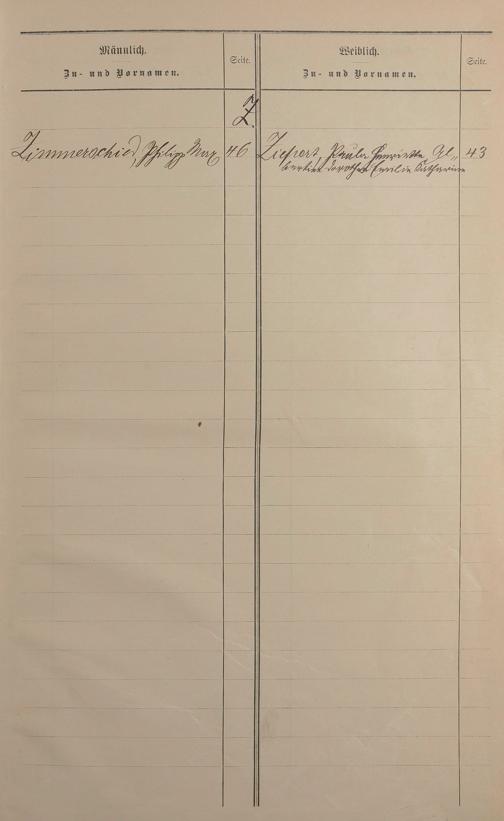 Männlich.
Zu- und Vornamen.
Seite.
Weiblich.
Zu- und Vornamen.
Seite.
Z.
Zimmerschied, Philipp Max 46
Ziepert, Paula Henriette 43
Dorothea Emilie Catharina